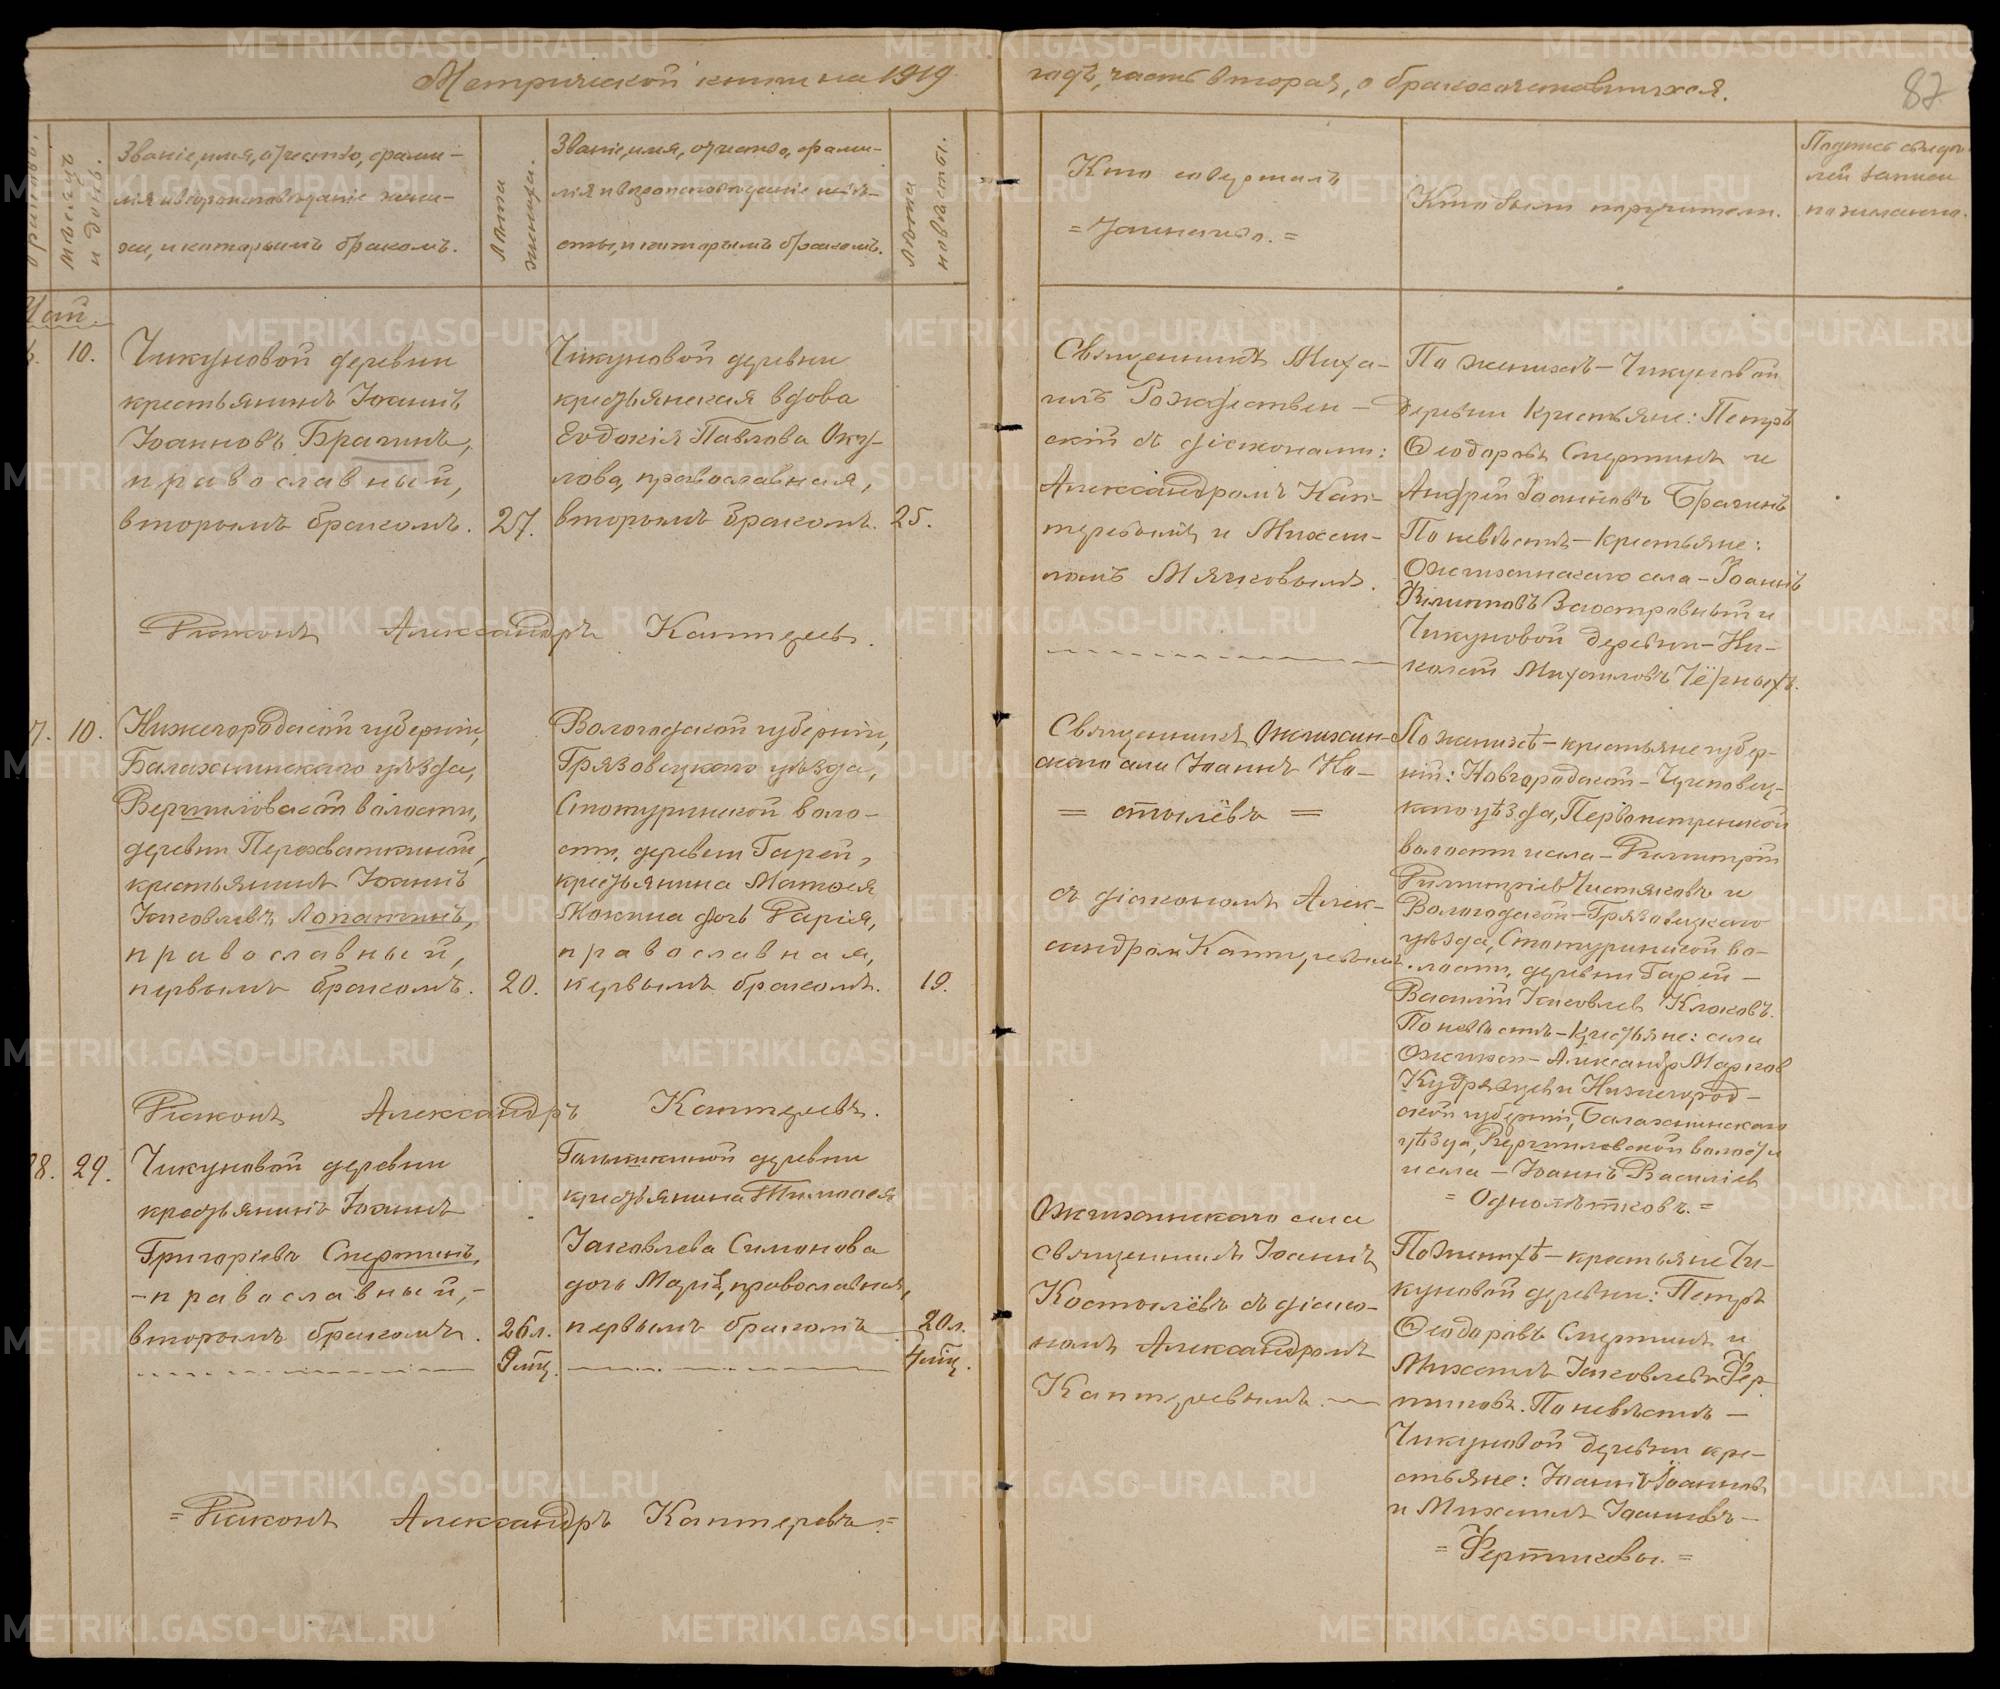 Метрической книги на 1919
годъ, часть вторая, о бракосочетавшихся.
87
Мѣсяцъ
и день.
Званіе, имя, отчество, фами-
лія и вѣроисповѣданіе жени-
ха, и которымъ бракомъ.
Лѣта
жениха.
Званіе, имя, отчество, фами-
лія и вѣроисповѣданіе невѣ-
сты, и которымъ бракомъ.
Лѣта
невѣсты.
Кто совершалъ
= Таинство. =
Кто были поручители.
Подпись свидѣт
лей записи
по желанію.
Май.
10.
Чикуновой деревни
крестьянинъ Іоаннъ
Іоанновъ Брагинъ,
православный,
вторымъ бракомъ.
27.
Чикуновой деревни
крестьянская вдова
Евдокія Павлова Оку-
лова, православная,
вторымъ бракомъ.
25.
Священникъ Миха-
илъ Рождествен-
скій съ діаконами:
Александромъ Кап-
теревымъ и Михаи-
ломъ Мячковымъ.
По женихѣ – Чикуновой
деревни крестьяне: Петръ
Ѳеодоровъ Смертинъ и
Андрей Іоанновъ Брагинъ
По невѣстѣ – крестьяне:
села – Іоаннъ
Филипповъ Заостровный и
Чикуновой деревни – Ни-
колай Михаиловъ Чёрныхъ.
= Діаконъ Александръ Каптеревъ.
7. 10.
Нижегородской губерніи,
Балахнинскаго уѣзда,
волости,
деревни Перехваткиной,
крестьянинъ Іоаннъ
Іаковлевъ Лопатинъ,
православный,
первымъ бракомъ.
20.
Вологодской губерніи,
Грязовецкаго уѣзда,
Степуринской воло-
сти, деревни Гарей,
крестьянина Матѳея
Жокина дочь Дарія,
православная,
первымъ бракомъ.
19.
Священникъ
скаго села Іоаннъ Ко-
= стылёвъ =
съ діакономъ Алек-
сандромъ Каптеревымъ.
По женихѣ – крестьяне губер-
ній: Новгородской – Череповец-
каго уѣзда, Первопетровской
волости и села – Димитрій
Димитріевъ Чистяковъ и
Вологодской – Грязовецкаго
уѣзда, Степуринской во-
лости, деревни Гарей –
Василій Іаковлев Клоковъ.
По невѣстѣ – крестьяне: села
Александръ Марков
Кудрявцевъ и Нижегород-
ской губерніи, Балахнинскаго
уѣзда, волости
и села – Іоаннъ Василіев
= Однолѣтковъ. =
Діаконъ Александръ Каптеревъ.
8. 29.
Чикуновой деревни
крестьянинъ Іоаннъ
Григоріевъ Смертинъ,
– православный, –
вторымъ бракомъ.
26 л.
9 мѣс.
деревни
крестьянина Тимоѳея
Іаковлева Симонова
дочь Марія, православная,
первымъ бракомъ
20 л.
4 мѣс.
села
священникъ Іоаннъ
Костылёвъ съ діако-
номъ Александромъ
Каптеревымъ.
По женихѣ – крестьяне Чи-
куновой деревни: Петръ
Ѳеодоровъ Смертинъ и
Михаилъ Іаковлевъ Фер-
тиковъ. По невѣстѣ –
Чикуновой деревни кре-
стьяне: Іоаннъ Іоанновъ
и Михаилъ Іоанновъ –
= Фертиковы. =
= Діаконъ Александръ Каптеревъ. =
METRIKI.GASO-URAL.RU